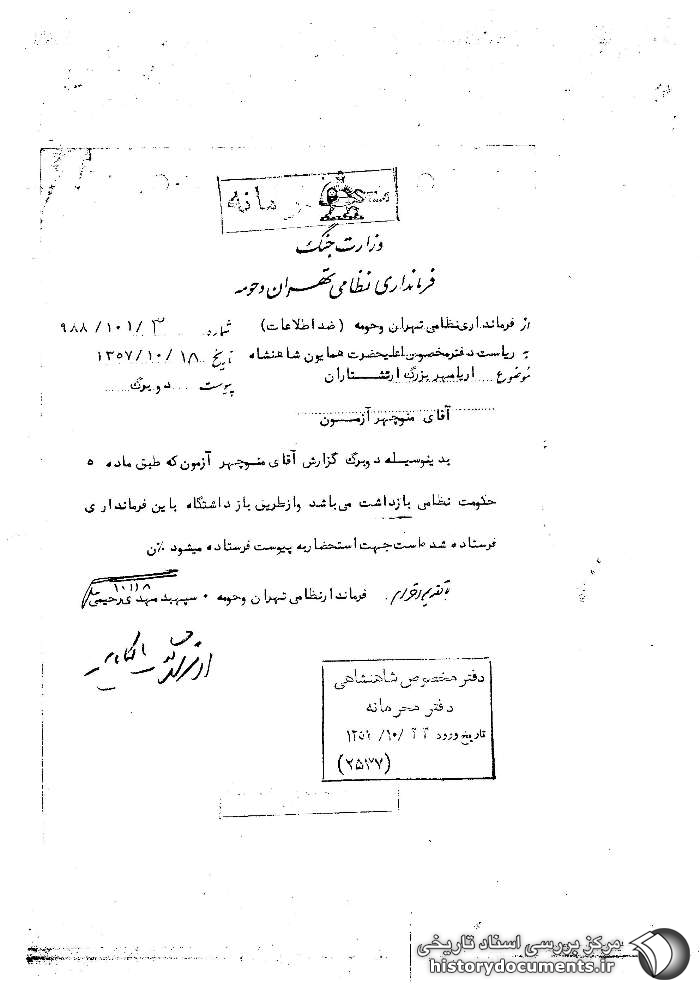 مانه
وزارت جنگ
فرمانداری نظامی تهران و حومه
از فرمانداری نظامی تهران وحومه (ضد اطلاعات) شماره ۳/ ۱۰۱/ ۹۸۸
به ریاست دفتر مخصوص اعلیحضرت همایون شاهنشاه تاریخ ۱۸/ ۱۰/ ۱۳۵۷
موضوع آریامهر بزرگ ارتشتاران پیوست دو برگ
آقای منوچهر آزمون
بدینوسیله دوبرگ گزارش آقای منوچهر آزمون که طبق ماده ۵
حکومت نظامی بازداشت می باشد و از طریق بازداشتگاه باین فرمانداری
فرستاده شده است جهت استحضار به پیوست فرستاده میشود
با تقدیم احترام. فرماندار نظامی تهران وحومه ۰ سپهبد مهدی رحیمی
۱۰/۱۸
دفتر مخصوص شاهنشاهی
دفتر محرمانه
تاریخ ورود /۱۰/
(۲۵۳۷)
مرکز بررسی اسناد تاریخی
historydocuments.ir